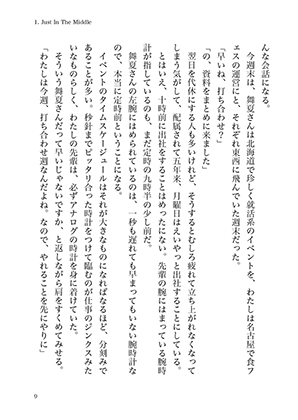 1. Just In The Middle
んな会話になる。
　今週末は、舞夏さんは北海道で珍しく就活系のイベントを、わたしは名古屋で食フ
ェスの運営にと、それぞれ東西に飛んでいた週末だった。
「早いね、打ち合わせ？」
「の、資料をまとめに来ました」
　翌日を代休にする人も多いけれど、そうするとむしろ疲れて立ち上がれなくなって
しまう気がして、配属されて五年来、月曜日はえいやっと出社することにしている。
とはいえ、十時前に出社をすることはめったにない。先輩の腕にはまっている腕時
計が指しているのも、まだ定時の九時半の少し前だ。
　舞夏さんの左腕にはめられているのは、一秒も遅れても早まってもいない腕時計な
ので、本当に定時前ということになる。
　イベントのタイムスケジュールはそれが大きなものになればなるほど、分刻みで
あることが多い。秒針までピッタリ合った時計をつけて臨むのが仕事のジンクスみた
いなものらしく、わたしの先輩は、必ずアナログの時計を身に着けていた。
　そういう舞夏さんだって早いじゃないですか、と返しながら肩をすくめてみせる。
「わたしは今週、打ち合わせ週なんだよね。なので、やれることを先にやりに」
9